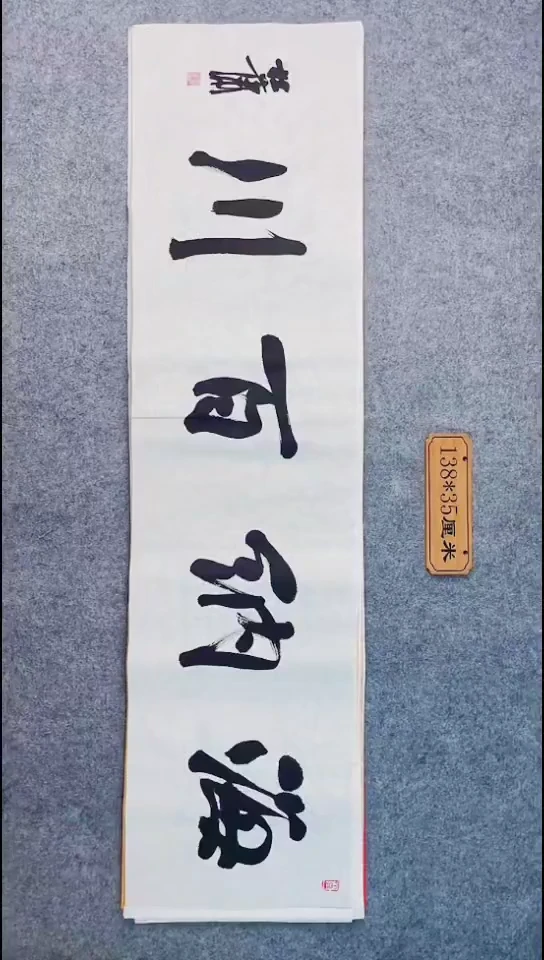 海納百川
138*35厘米